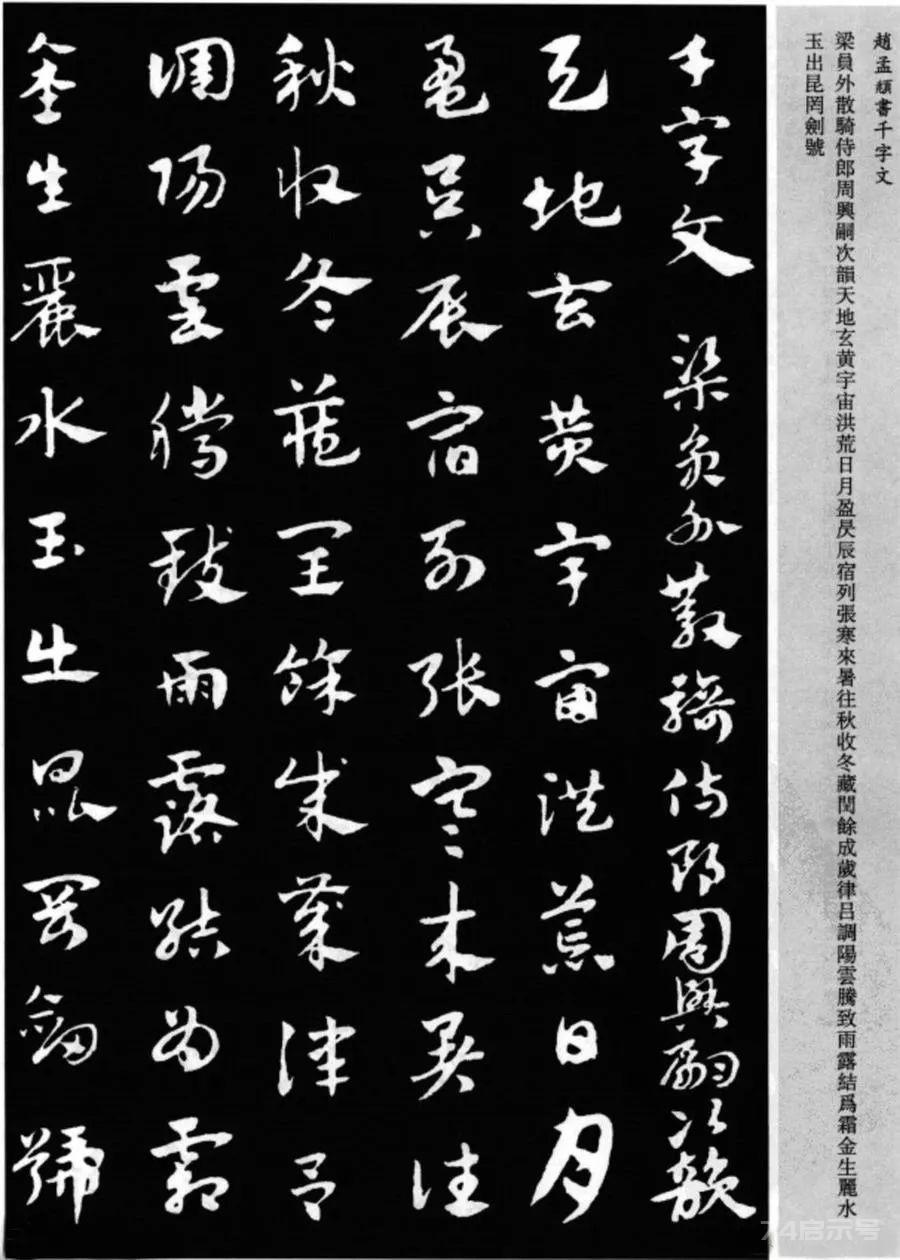 趙孟頫書千字文
梁員外散騎侍郎周興嗣次韻天地玄黄宇宙洪荒日月盈昃辰宿列張寒來暑往秋收冬藏閏餘成歲律吕調陽雲騰致雨露結爲霜金生麗水
玉出昆罔劍號
千字文 梁員外散騎侍郎周興嗣次韻
天地玄黄宇宙洪荒日月
盈昃辰宿列張寒來暑往
秋收冬藏閏餘成歲律吕
調陽雲騰致雨露結為霜
金生麗水玉出崑罡劍號
74启示号